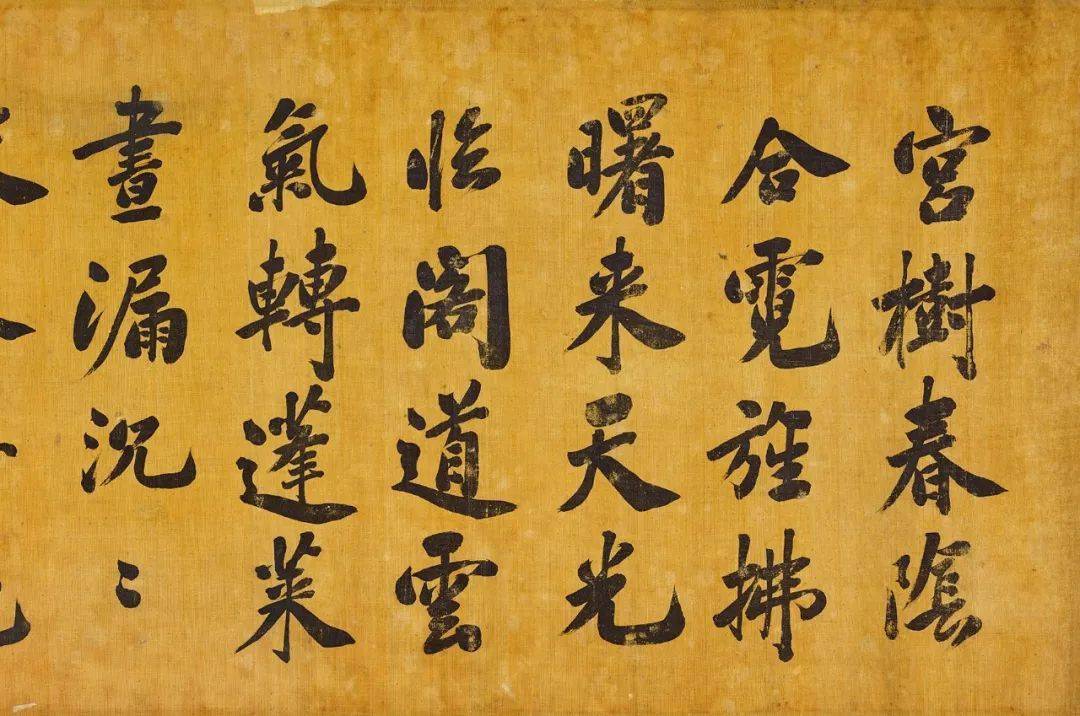 宮樹春陰
合霓旌拂
曙来天光
臨閣道雲
氣轉蓬萊
晝漏沉〻